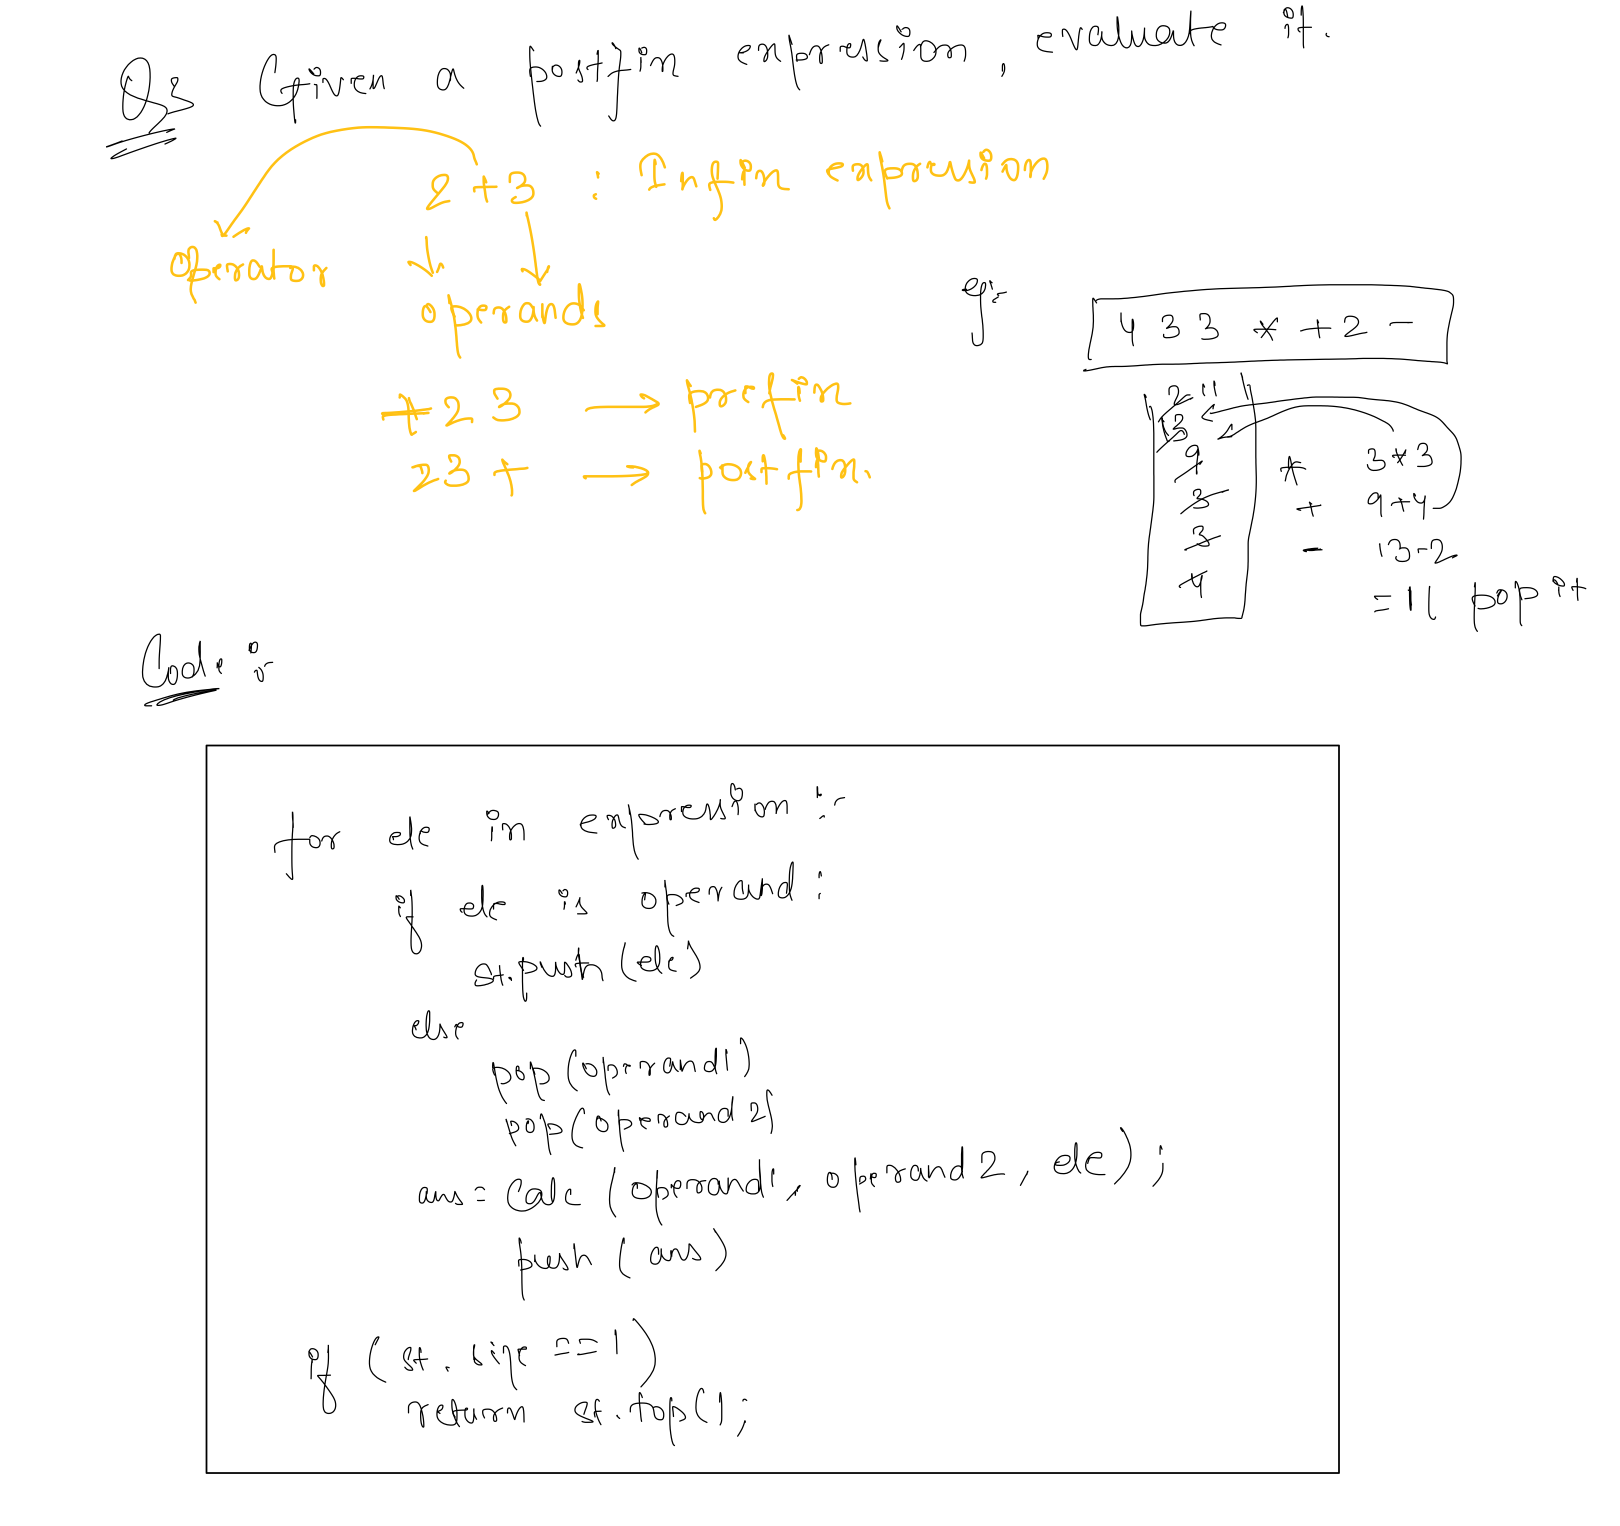 Q3 Given a postfix expression, evaluate it.
2 + 3 : Infix expression
operator
operands
+ 2 3 → prefix
2 3 + → postfix.
eg:-
4 3 3 * + 2 -
2 11
13
9
3
3
4
* 3*3
+ 9+4
- 13-2
= 11 pop it
Code :-
for ele in expression :-
if ele is operand :
st.push (ele)
else
pop (operand1)
pop (operand 2)
ans = calc (operand1, operand 2, ele) ;
push ( ans )
if ( st. size == 1 )
return st. top();